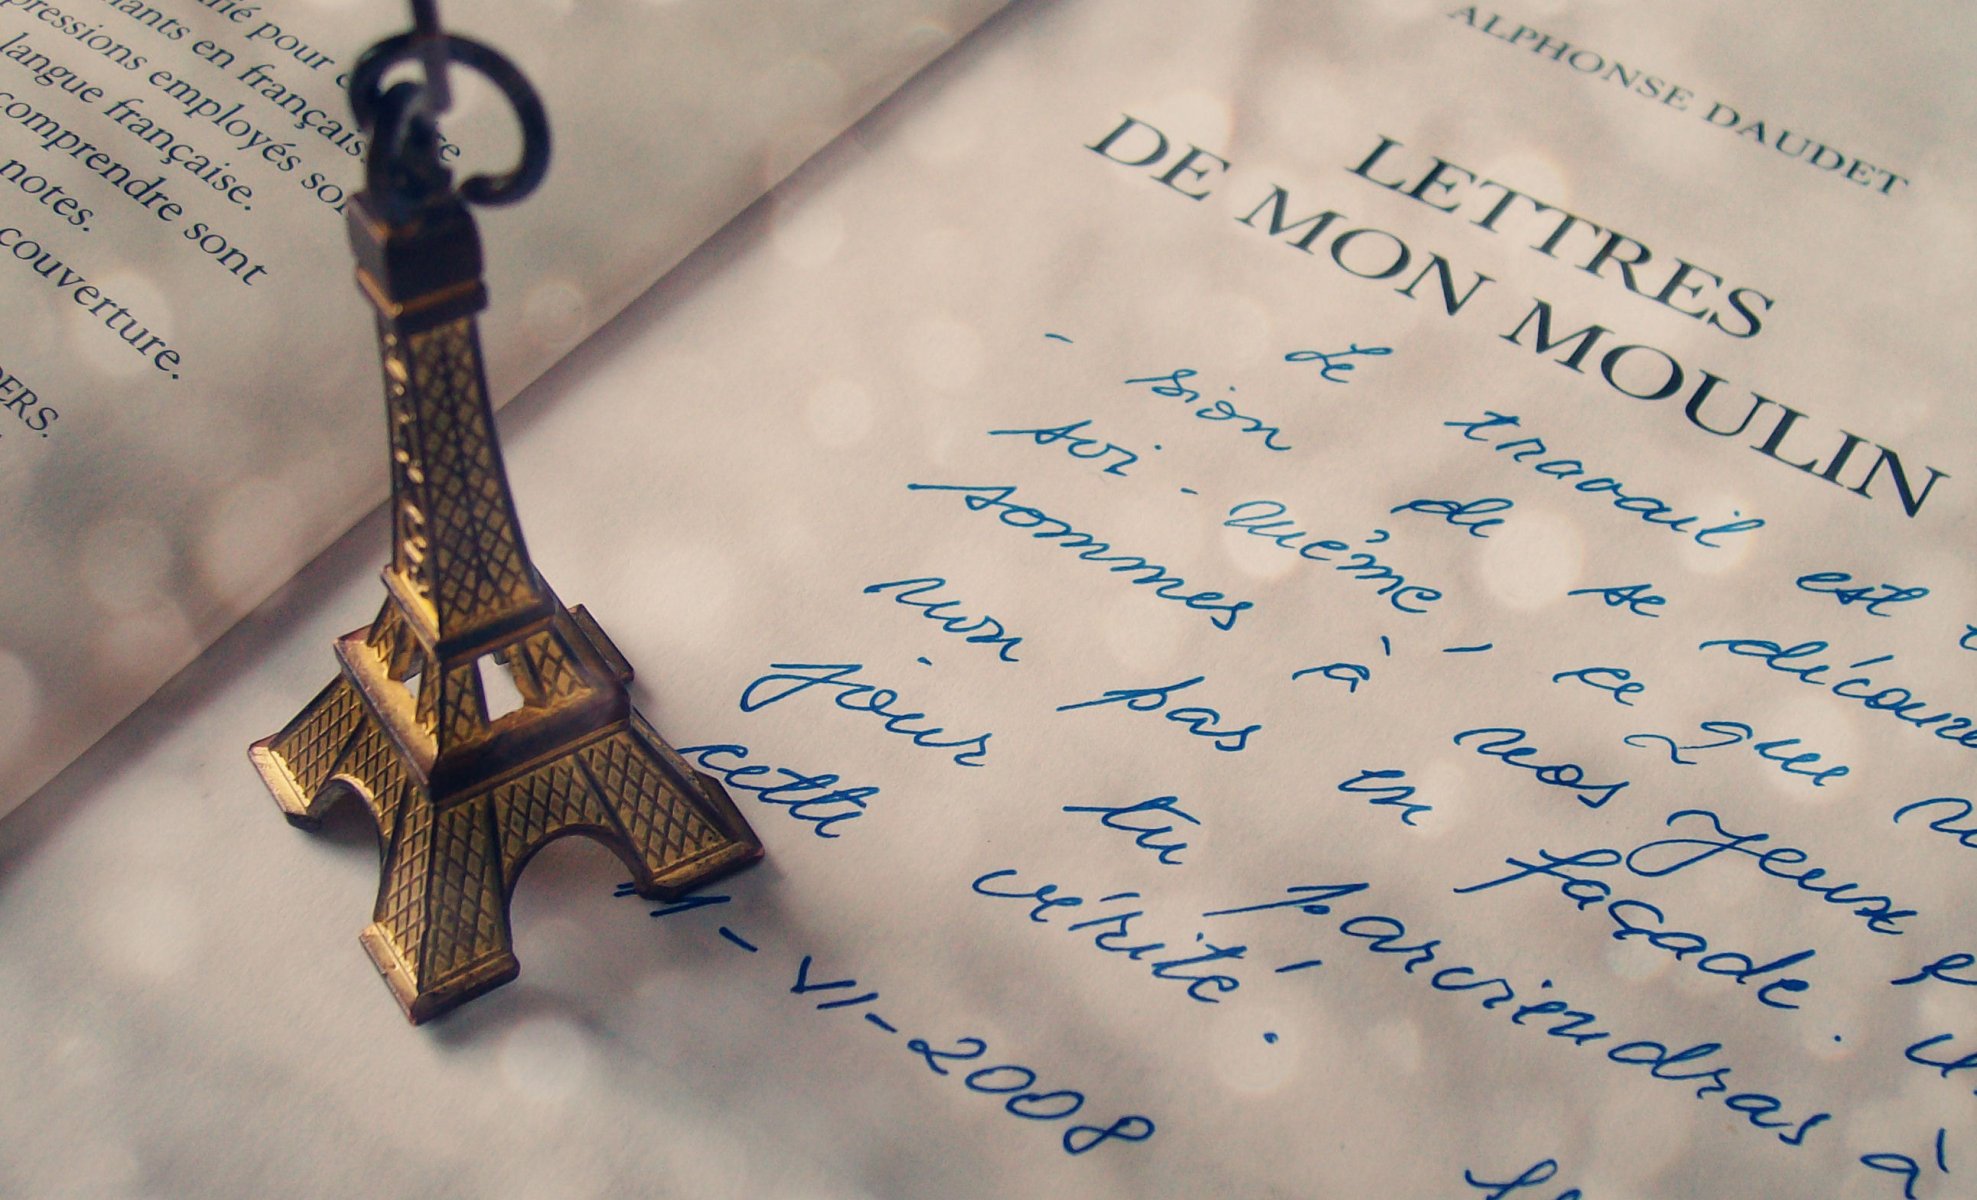 pour
en français.
pressions employés
langue française.
comprendre sont
notes.
couverture.
ALPHONSE DAUDET
LETTRES
DE MON MOULIN
Le travail est
- sion de se
soi-même, ce que
sommes à nos yeux
non pas en façade.
jour tu parviendras à
cette vérité.
VII-2008